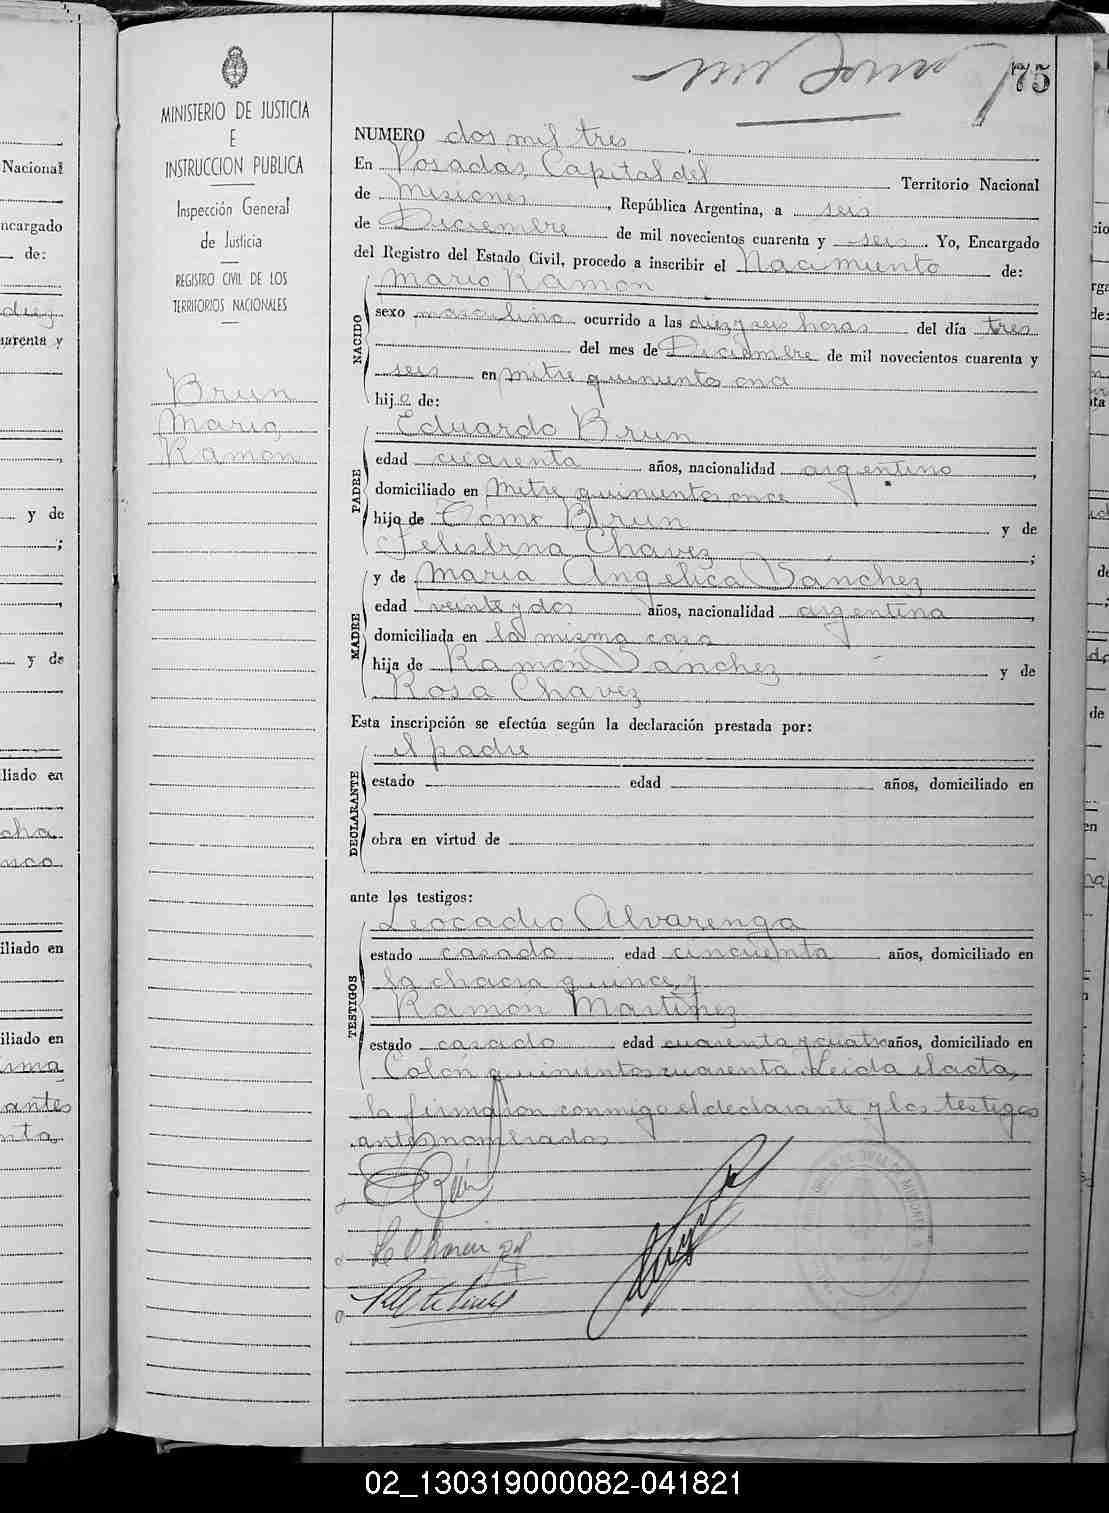 75
MINISTERIO DE JUSTICIA
E
INSTRUCCION PUBLICA
Inspección General
de Justicia
REGISTRO CIVIL DE LOS
TERRITORIOS NACIONALES
Brun
Mario
Ramon
NUMERO dos mil tres
En Posadas, Capital del Territorio Nacional
de Misiones, República Argentina, a seis
de Diciembre de mil novecientos cuarenta y seis. Yo, Encargado
del Registro del Estado Civil, procedo a inscribir el Nacimiento de:
NACIDO
Mario Ramon
sexo masculino ocurrido a las diez y seis horas del día tres
del mes de Diciembre de mil novecientos cuarenta y
seis en mitre quinientos once
hijo de:
PADRE
Eduardo Brun
edad cuarenta años, nacionalidad argentino,
domiciliado en mitre quinientos once
hijo de Tome Brun y de
Felisbina Chavez;
MADRE
y de Maria Angelica Sanchez
edad veinte y dos años, nacionalidad argentina,
domiciliada en la misma casa
hija de Ramon Sanchez y de
Rosa Chavez
Esta inscripción se efectúa según la declaración prestada por:
DECLARANTE
el padre
estado edad años, domiciliado en
obra en virtud de
ante los testigos:
TESTIGOS
Leocadio Alvarenga
estado casado edad cincuenta años, domiciliado en
la chacra quince, y
Ramon Martinez
estado casado edad cuarenta y cuatro años, domiciliado en
Colon quinientos cuarenta. Leida el acta,
la firmaron conmigo el declarante y los testigos
antes nombrados
Nacional
ncargado
de:
diez
uarenta y
y de
;
y de
liado en
cha
nco
iliado en
iliado en
isma
antes
nta
02_130319000082-041821